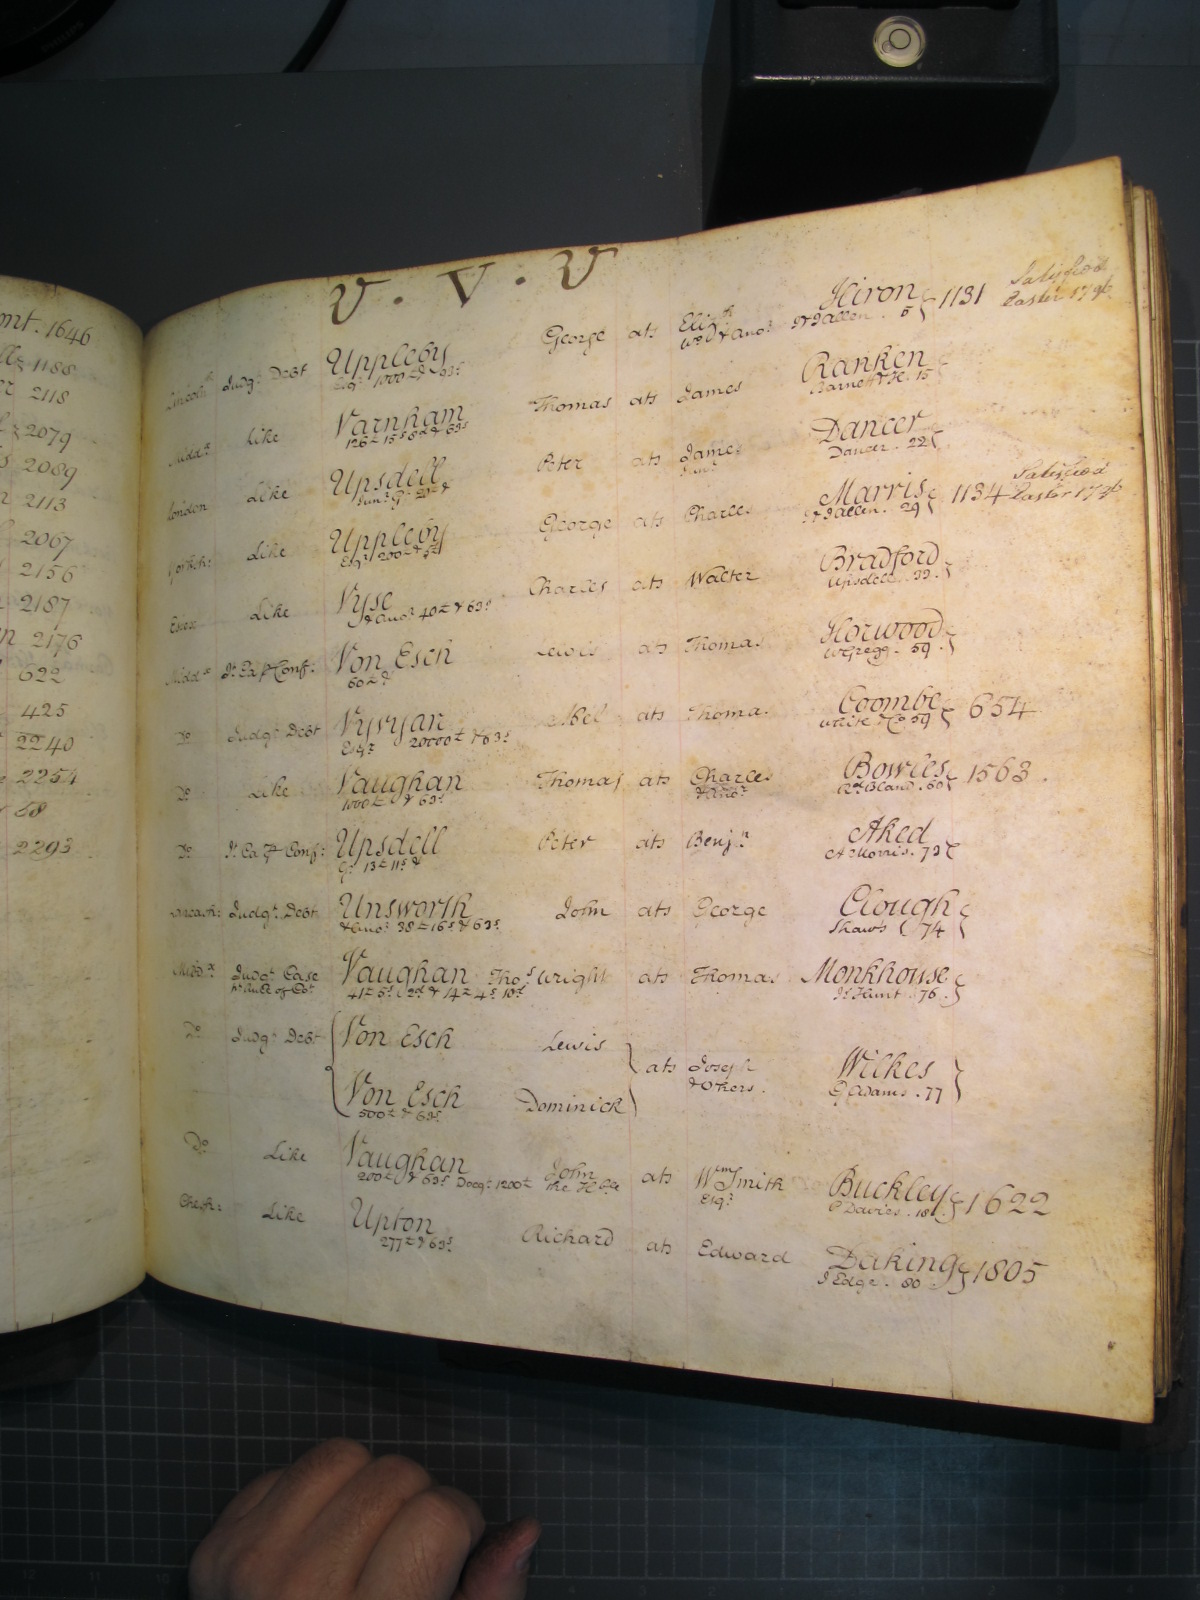 ent. 1646
1188
2118
2079
2089
2113
2067
2156
2187
2176
622
425
2240
2254
68
2293
U . V . U
Lincoln Judgt Debt Uppleby George ats Elizth Hiron 1131 Satisfied
Esqr 1000£ & 63s Wid & Anor Jno Allen . 5 Easter 1796
Middx Like Varnham Thomas ats James Ranken
126£ 15s 8d & 63s Barnett & Ne. 15
London Like Upsdell Peter ats James Dancer
Junr Dancer. 22
Yorksh: Like Uppleby George ats Charles Marris 1134 Satisfied
Esqr 200£ & Jno Allen. 29 Easter 1796
Essex Like Vyse Charles ats Walter Bradford
& Anor 40£ & 63s Upsdell. 33.
Middx Von Esch Lewis ats Thomas Horwood
60£ & W Gregg. 59.
Do Judgt Debt Vyvyan ats Thomas Coombe 654
Esqr 20000£ & 63s White & Co 59
Do Like Vaughan Thomas ats Charles Bowles 1563
1000£ & 63s & Anor Rd Bland. 60
Do Upsdell Peter ats Benjn Aked
13£ 11s & A Morris. 73
Lancash: Judgt Debt Unsworth John ats George Clough
& Anor 38£ 16s & 63s Shaws 74
Middx Judgt Case Vaughan Thos Wright ats Thomas Monkhouse
41£ 5s 2d & 14£ 4s 10d Jno Hunt. 76.
Do Judgt Debt Von Esch Lewis
ats Joseph Wilkes
& Others. G Adams. 77
Von Esch Dominick
500£ & 63s
Do Like Vaughan John ats Wm Smith Buckley 1622
200£ & 63s Docqt 1200£ the Esqr C Davies. 18
Chesh: Like Upton Richard ats Edward Daking 1805
277£ & 63s J Edge. 80
12 11 10